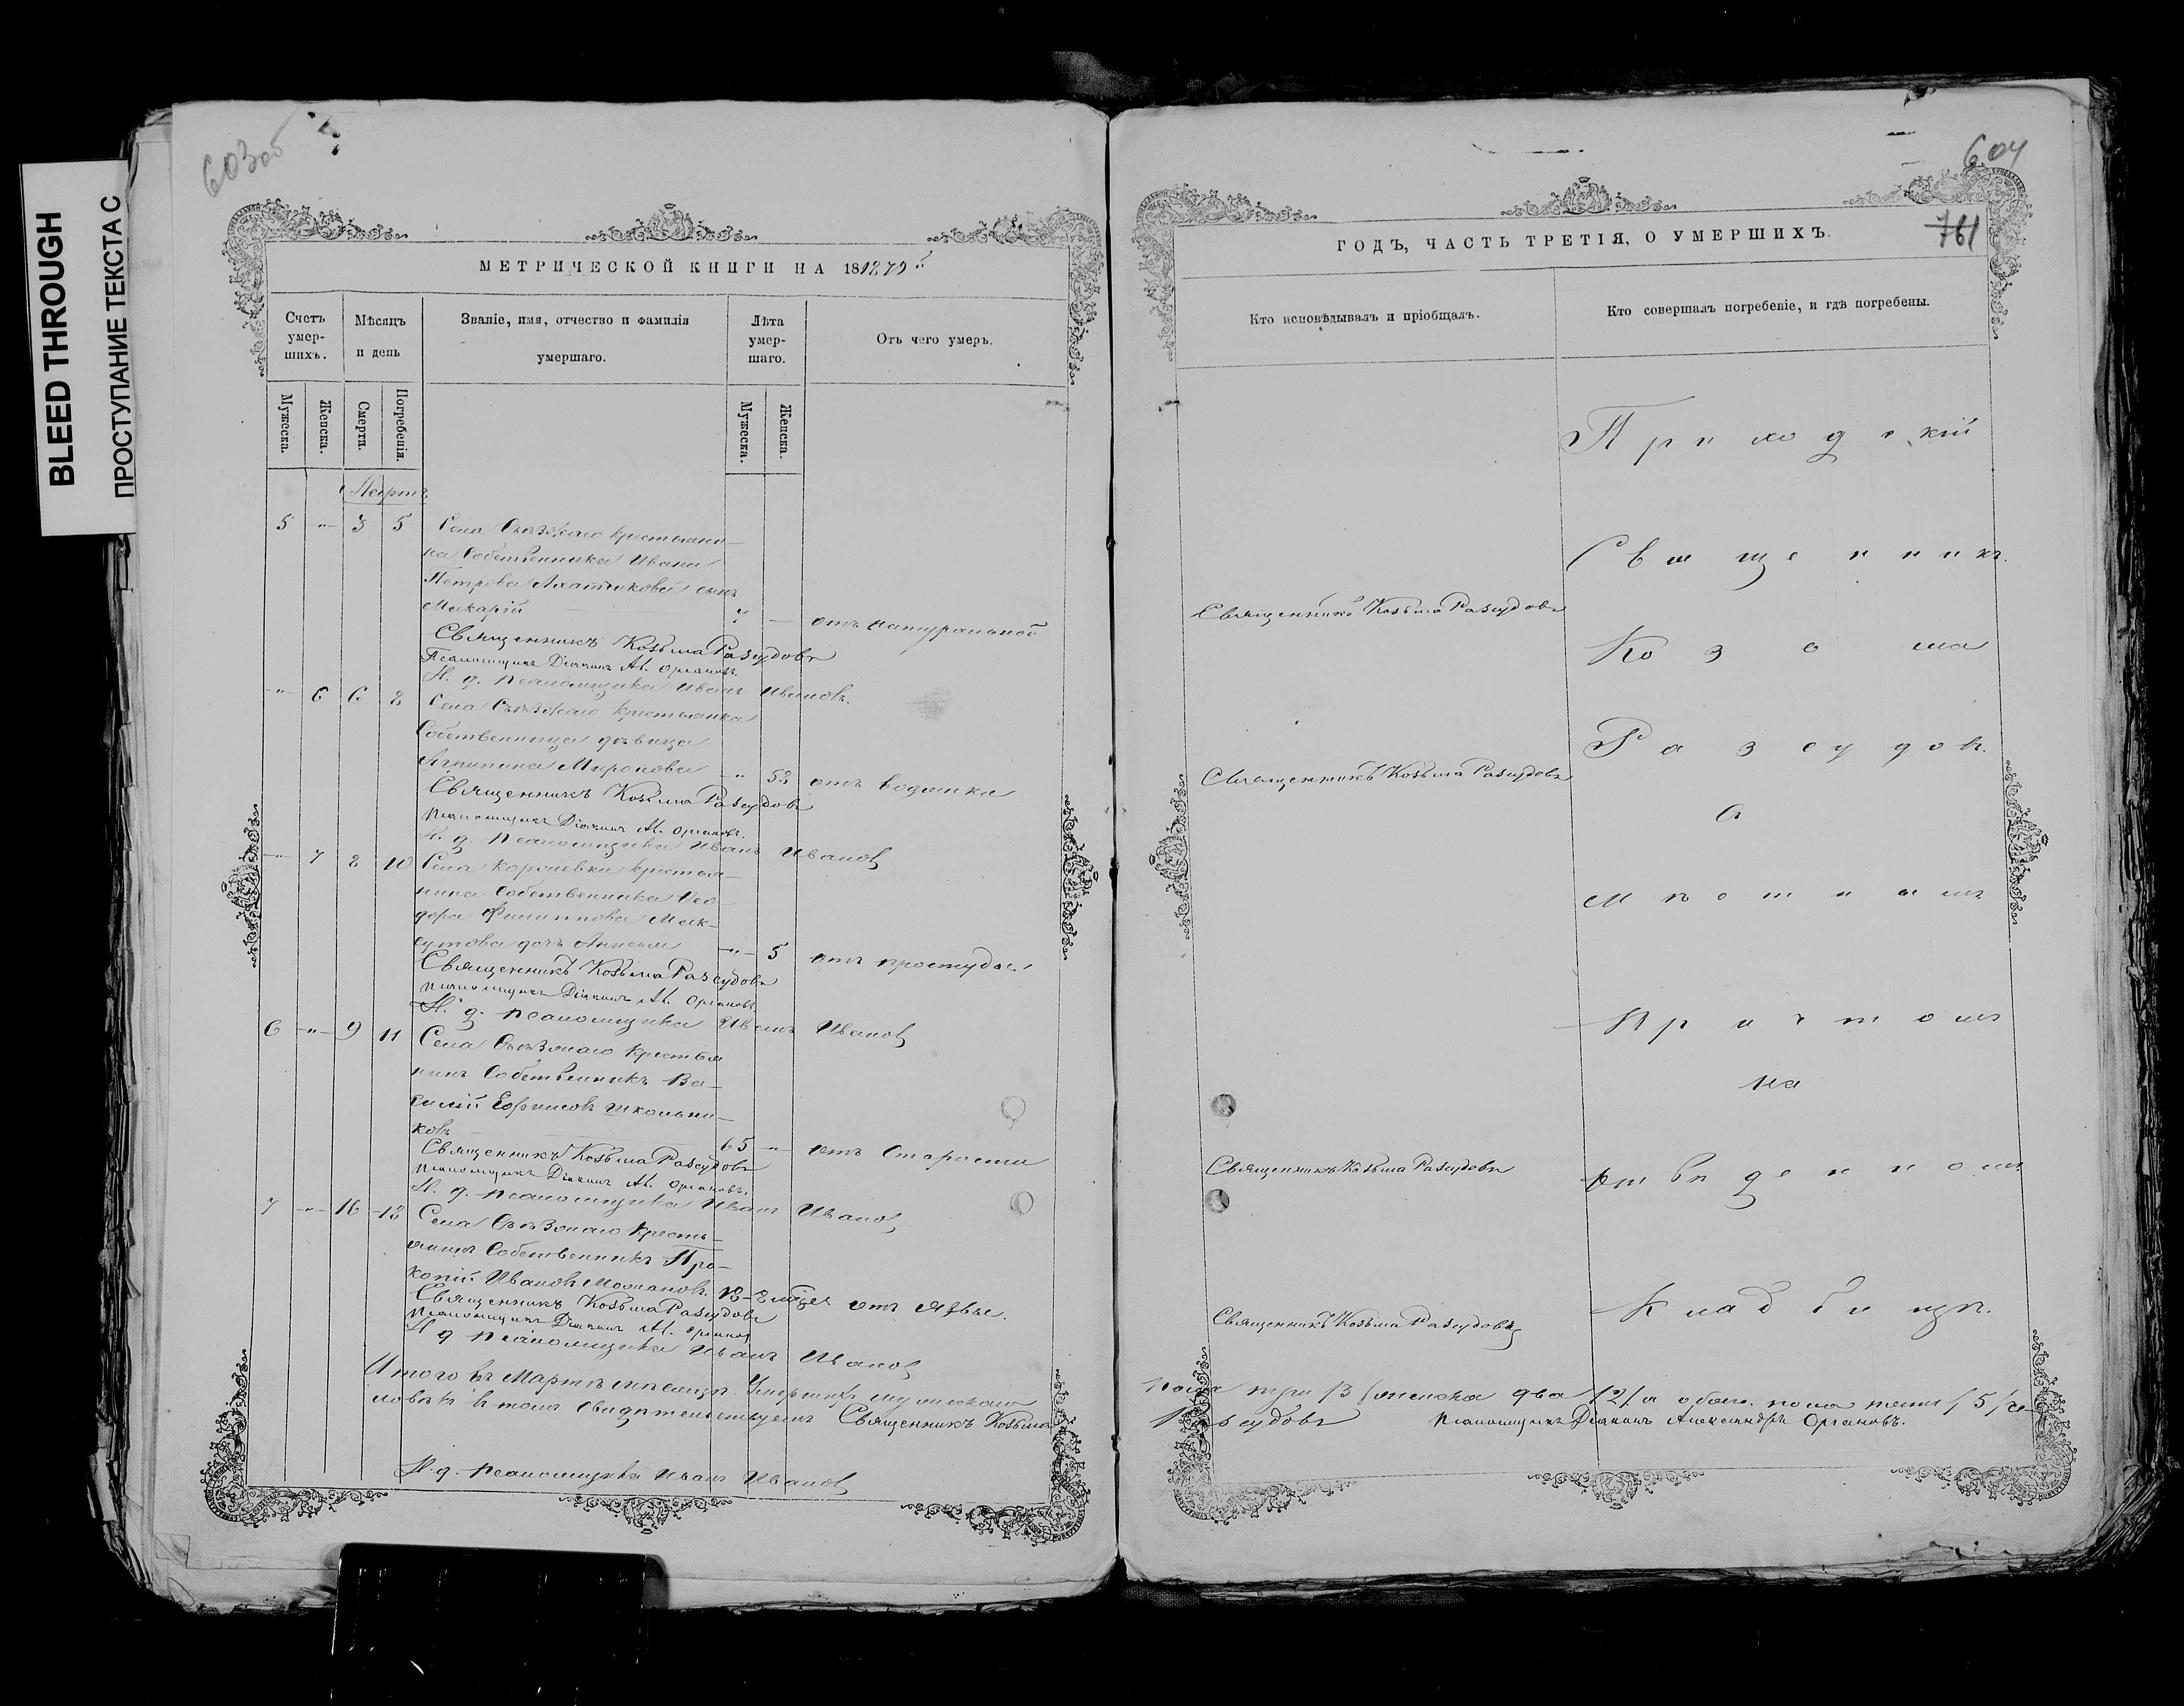 BLEED THROUGH
ПРОСТУПАНИЕ ТЕКСТА С
603об
МЕТРИЧЕСКОЙ КНИГИ НА 18
Счетъ умер-шихъ.
Мѣсяцъ и день
Званіе, имя, отчество и фамилія умершаго.
Лѣта умер-шаго.
Отъ чего умеръ.
Мужеска.
Женска.
Смерти.
Погребенія.
Мужеска.
Женска.
Мартъ
5 -"- 3 5 Села Съѣзжаго крестьяни-
на Собственника Ивана
Петрова сынъ
Макарій отъ натуральной
Священникъ Козьма Разсудовъ
Псаломщикъ Діаконъ Ал. Органовъ.
И. д. псаломщика Иванъ Ивановъ.
-"- 6 6 8 Села Съѣзжаго крестьянка
Собственница дѣвица
Агрипина Миронова -"- 53 отъ водянки
Священникъ Козьма Разсудовъ
Псаломщикъ Діаконъ Ал. Органовъ.
И. д. псаломщика Иванъ Ивановъ
-"- 7 8 10 Села крестья-
нина Собственника Фео-
дора Филиппова Мак-
сутова дочь -"- 5 отъ простуды.
Священникъ Козьма Разсудовъ
Псаломщикъ Діаконъ Ал. Органовъ
И. д. псаломщика Иванъ Ивановъ
6 -"- 9 11 Села Съѣзжаго крестья
нинъ Собственникъ Ва-
силій Ефимовъ Школьни-
ковъ 65 -"- отъ старости
Священникъ Козьма Разсудовъ
Псаломщикъ Діаконъ Ал. Органовъ.
И. д. псаломщика Иванъ Ивановъ
7 -"- 16 18 Села Съѣзжаго кресть-
янинъ Собственникъ Про-
копій Ивановъ отъ язвы.
Священникъ Козьма Разсудовъ
Псаломщикъ Діаконъ Ал. Органовъ
И д псаломщика Иванъ Ивановъ
Итого въ Мартѣ мѣсяцѣ умершихъ мужескаго
ловѣкъ въ томъ свидѣтельствуемъ Священникъ Козьма
И. д. псаломщика Иванъ Ивановъ
604
761
ГОДЪ, ЧАСТЬ ТРЕТІЯ, О УМЕРШИХЪ.
Кто исповѣдывалъ и пріобщалъ.
Кто совершалъ погребеніе, и гдѣ погребены.
Приходскій
Священникъ
Священникъ Козьма Разсудовъ
Козьма
Разсудовъ
Священникъ Козьма Разсудовъ
съ
мѣстнымъ
Причтомъ
на
Священникъ Козьма Разсудовъ
отведенномъ
Священникъ Козьма Разсудовъ
Кладбищѣ.
пола три /3/ женска два /2/ а обоего пола пять /5/ че-
Разсудовъ Псаломщикъ Діаконъ Александръ Органовъ.